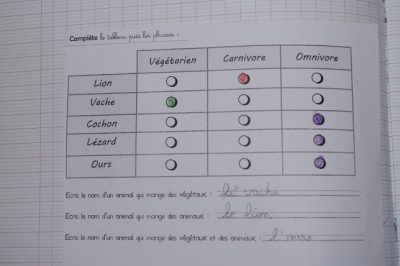 Complète le tableau puis les phrases :
Végétarien Carnivore Omnivore
Lion
Vache
Cochon
Lézard
Ours
Ecris le nom d'un animal qui mange des végétaux : la vache
Ecris le nom d'un animal qui mange des animaux : le lion
Ecris le nom d'un animal qui mange des végétaux et des animaux : l'ours